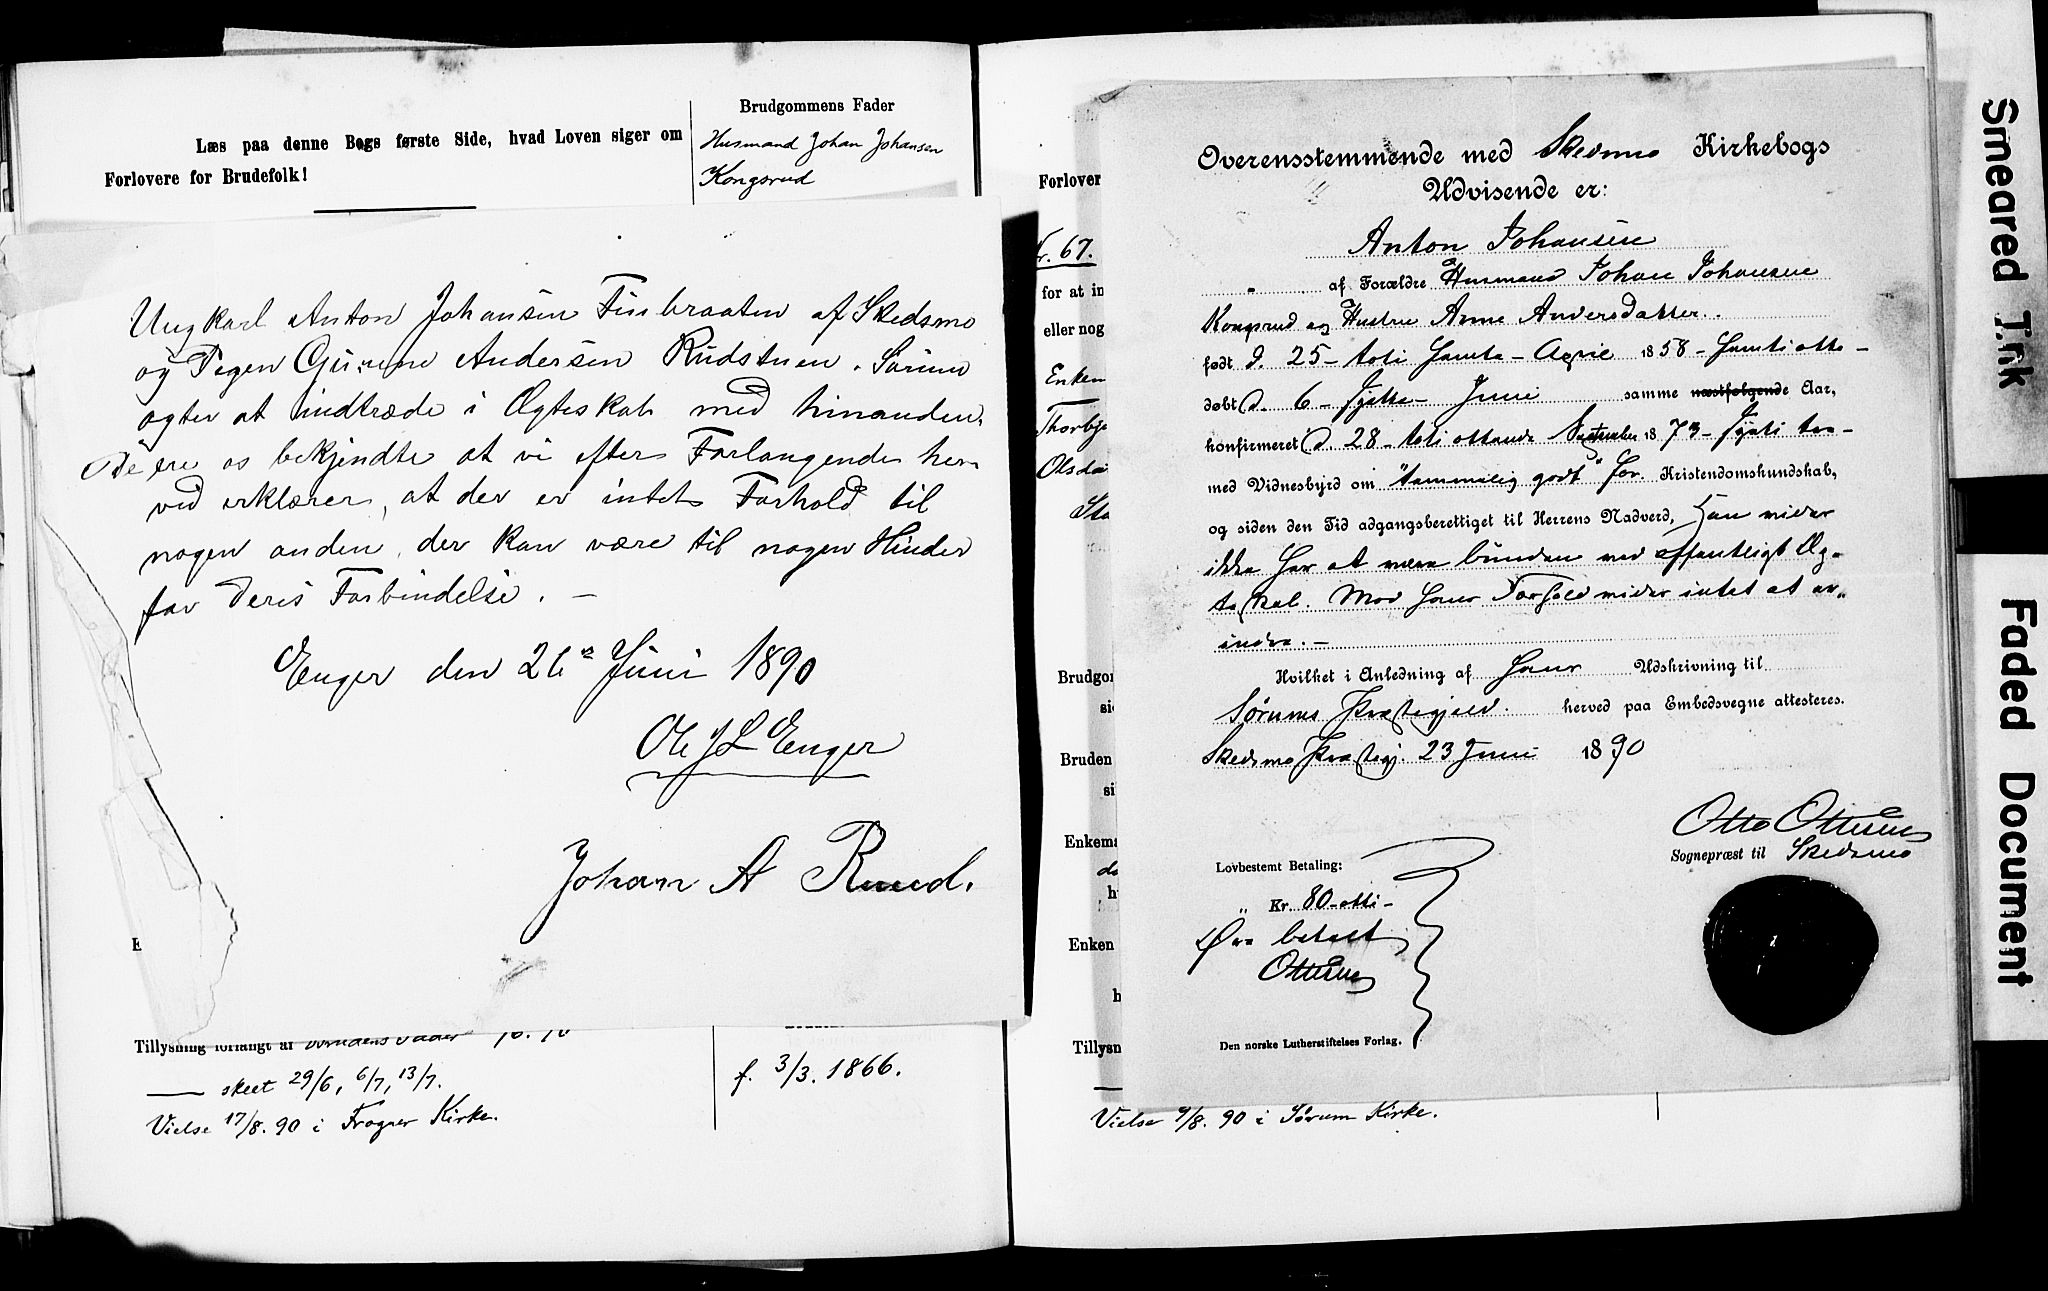 Læs paa denne Bogs første Side, hvad Loven siger om
Forlovere for Brudefolk!
Brudgommens Fader
Husmand Johan Johansen
Kongsrud
Ungkarl Anton Johansen Finbraaten af Skedsmo
og Pigen Andersen Rudstuen, Sørum
agter at indtræde i Ægteskab med hinanden.
De ere os bekjendte at vi efter Forlangende her
ved erklærer, at der er intet Forhold til
nogen anden, der kan være til nogen Hinder
for deres Forbindelse. —
Enger den 26 Juni 1890
Ole J L Enger
Johan A Ruud.
E
Tillysning forlangt af Brudens Fader
— skeet 29/6, 6/7, 13/7.
Vielse 17/8. 90 i Frogner Kirke.
f. 3/3. 1866.
Forlover
Nr. 67.
for at in
eller nog
Enken
Thorbjø
Olsda
Sto
Brudgo
si
Bruden
si
Enkema
do
h
Enken
h
Tillysn
Vielse 9/8. 90 i Sørum Kirke.
Overensstemmende med Skedsmo Kirkebogs
Udvisende er:
Anton Johansen
„ af Forældre Husmand Johan Johansen
Kongsrud og Hustru Anne Andersdatter.
født d. 25 – toti femte – April 1858 – femti otte –
døbt d. 6 – sjette – Juni samme næstfølgende Aar,
konfirmeret d. 28 – toti ottende September 1873 – sytti tre –
med Vidnesbyrd om "temmelig godt" for Kristendomskundskab,
og siden den Tid adgangsberettiget til Herrens Nadverd, han vides
ikke her at være bunden ved offentligt Æg-
teskab. Mod hans Forhold vides intet at er-
indre. –
Hvilket i Anledning af hans Udskrivning til
Sørums Præstegjeld. herved paa Embedsvegne attesteres.
Skedsmo Præstegj. 23 Juni 1890
Otto Ottesen
Sognepræst til Skedsmo
Lovbestemt Betaling:
„ Kr. 80 – otti –
Øre betalt
Ottesen
Den norske Lutherstiftelses Forlag.
Smeared Ink
Faded Document